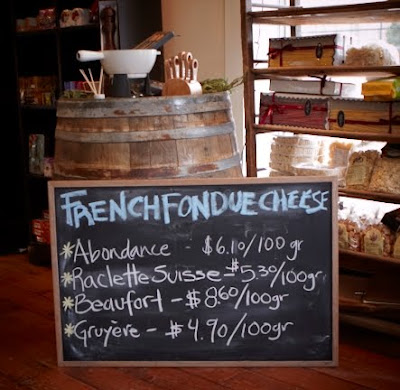 FRENCH FONDUE CHEESE
*Abondance - $6.10/100 gr
*Raclette Suisse - $5.30/100gr
*Beaufort - $8.60/100gr
*Gruyère - $4.90/100gr